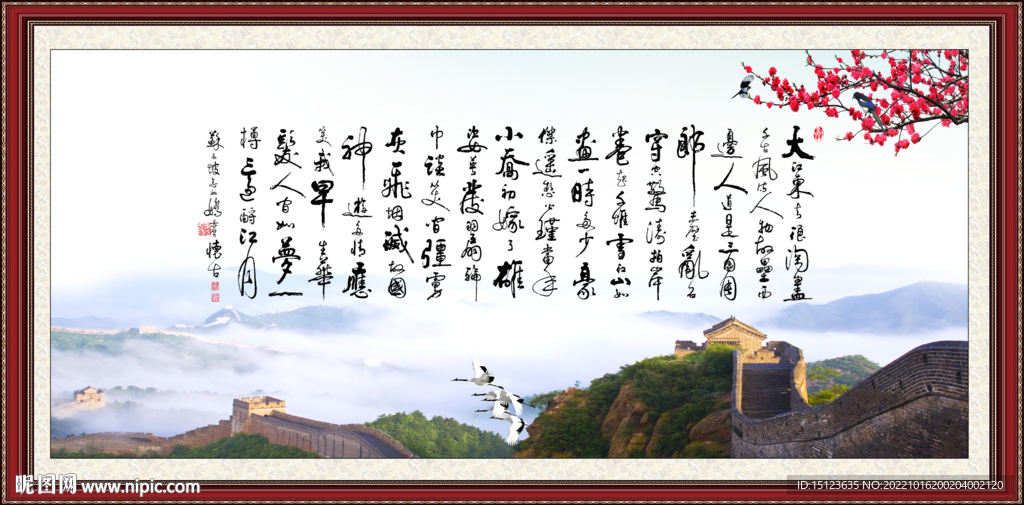 大江東去浪淘盡
千古風流人物故壘西
邊人道是三國周
郎赤壁亂石
穿空驚濤拍岸
卷起千堆雪江山如
畫一時多少豪
傑遥想公瑾當年
小喬初嫁了雄
姿英發羽扇綸
巾談笑間彊虜
灰飛烟滅故國
神遊多情應
笑我早生華
髮人間如夢一
樽還酹江月
蘇東坡念奴嬌懷古
昵图网 www.nipic.com
ID:15123635 NO:20221016200204002120